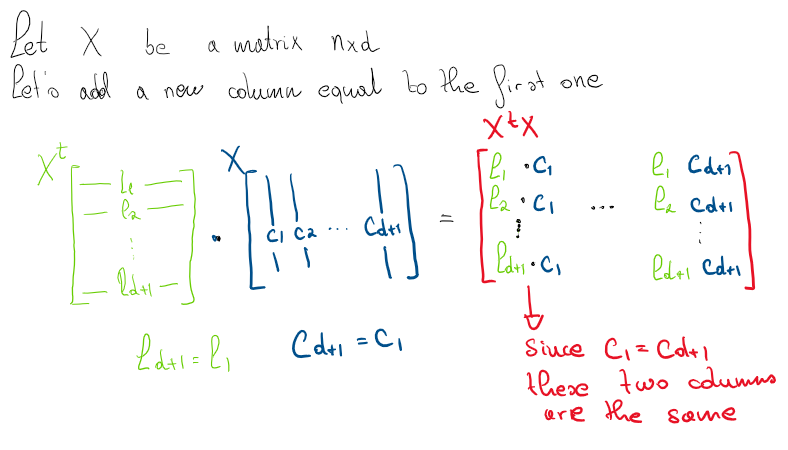 Let X be a matrix nxd
Let's add a new column equal to the first one
X^t X X^tX
[ — l1 — ] [ | | | ] [ l1 · c1 l1 cd+1 ]
[ — l2 — ] · [ c1 c2 ... cd+1 ] = [ l2 · c1 ... l2 cd+1 ]
[ ⋮ ] [ | | | ] [ ⋮ ⋮ ]
[ — ld+1 — ] [ ld+1 · c1 ld+1 cd+1 ]
ld+1 = l1 cd+1 = c1
↓
since c1 = cd+1
these two columns
are the same